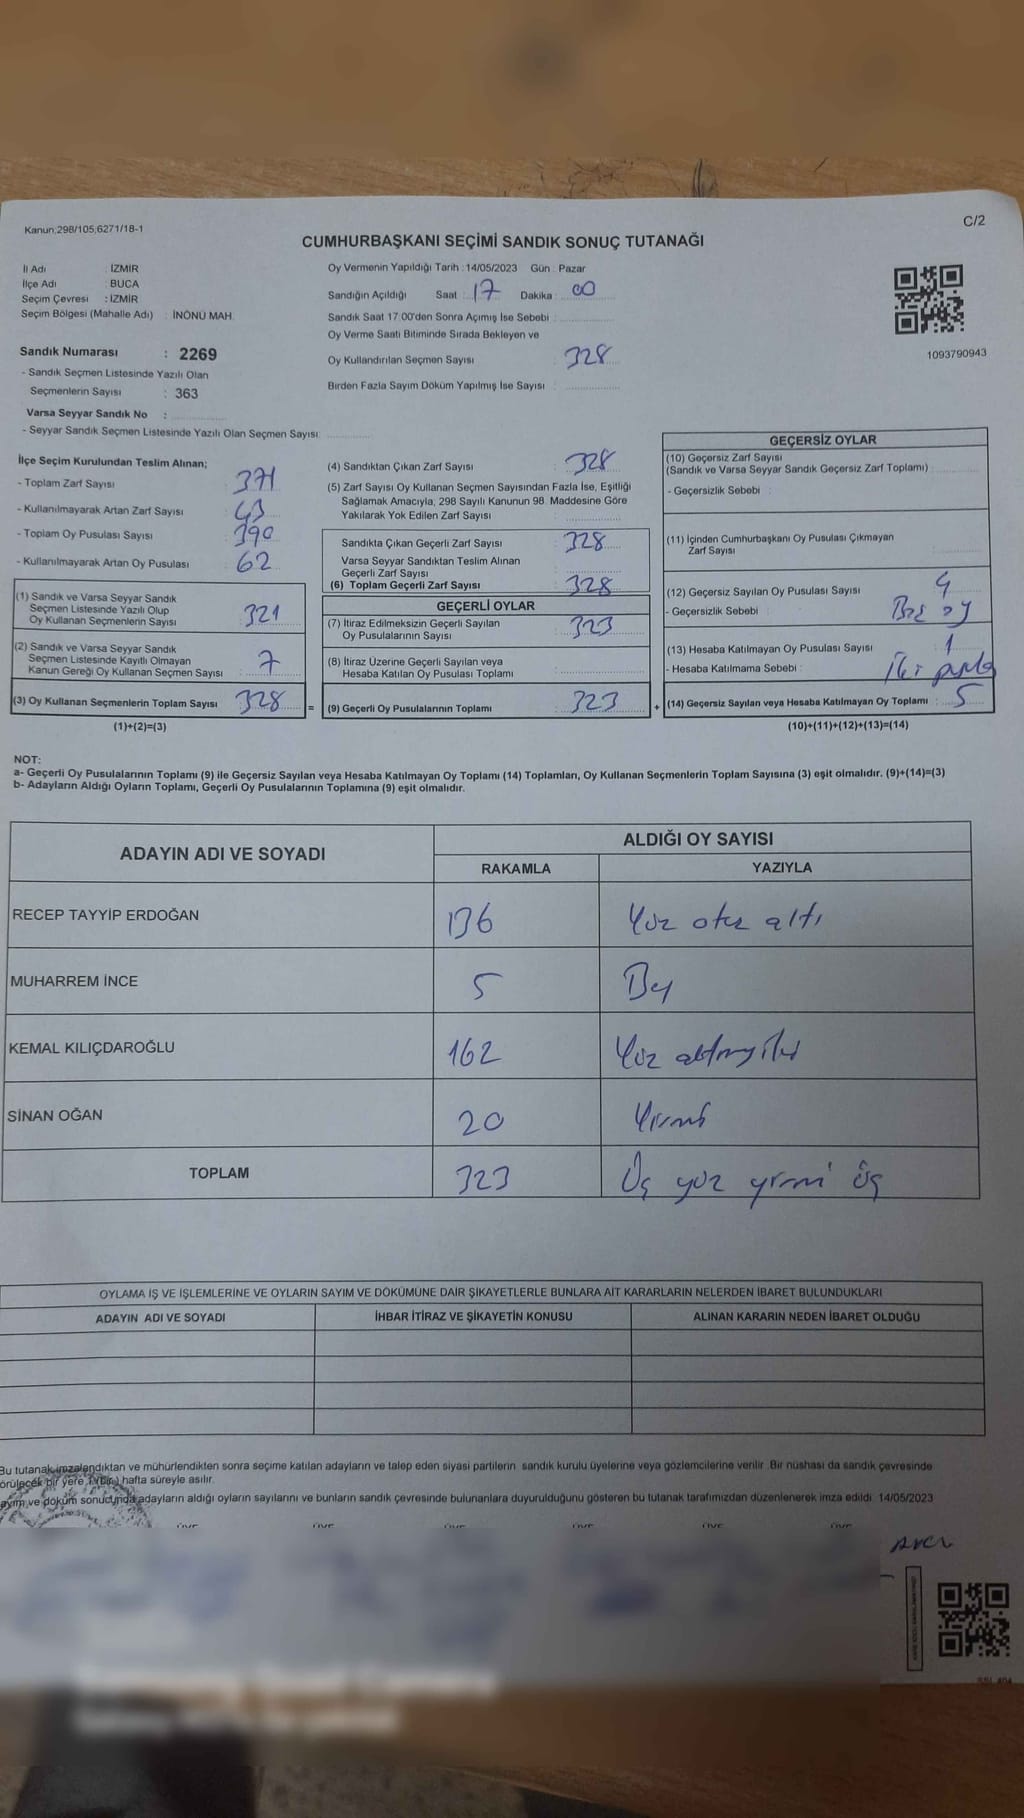 Kanun;298/105,6271/18-1
C/2
CUMHURBAŞKANI SEÇİMİ SANDIK SONUÇ TUTANAĞI
İl Adı : İZMİR
İlçe Adı : BUCA
Seçim Çevresi : İZMİR
Seçim Bölgesi (Mahalle Adı) : İNÖNÜ MAH.
Sandık Numarası : 2269
- Sandık Seçmen Listesinde Yazılı Olan
Seçmenlerin Sayısı : 363
Varsa Seyyar Sandık No :
- Seyyar Sandık Seçmen Listesinde Yazılı Olan Seçmen Sayısı:
Oy Vermenin Yapıldığı Tarih : 14/05/2023 Gün : Pazar
Sandığın Açıldığı Saat : 17 Dakika : 00
Sandık Saat 17:00'den Sonra Açımış İse Sebebi :
Oy Verme Saati Bitiminde Sırada Bekleyen ve
Oy Kullandırılan Seçmen Sayısı : 328
Birden Fazla Sayım Döküm Yapılmış İse Sayısı :
1093790943
İlçe Seçim Kurulundan Teslim Alınan;
- Toplam Zarf Sayısı : 371
- Kullanılmayarak Artan Zarf Sayısı : 43
- Toplam Oy Pusulası Sayısı : 390
- Kullanılmayarak Artan Oy Pusulası : 62
(1) Sandık ve Varsa Seyyar Sandık
Seçmen Listesinde Yazılı Olup
Oy Kullanan Seçmenlerin Sayısı : 321
(2) Sandık ve Varsa Seyyar Sandık
Seçmen Listesinde Kayıtlı Olmayan
Kanun Gereği Oy Kullanan Seçmen Sayısı : 7
(3) Oy Kullanan Seçmenlerin Toplam Sayısı : 328 =
(1)+(2)=(3)
(4) Sandıktan Çıkan Zarf Sayısı : 328
(5) Zarf Sayısı Oy Kullanan Seçmen Sayısından Fazla İse, Eşitliği
Sağlamak Amacıyla, 298 Sayılı Kanunun 98. Maddesine Göre
Yakılarak Yok Edilen Zarf Sayısı :
Sandıkta Çıkan Geçerli Zarf Sayısı : 328
Varsa Seyyar Sandıktan Teslim Alınan
Geçerli Zarf Sayısı :
(6) Toplam Geçerli Zarf Sayısı : 328
GEÇERLİ OYLAR
(7) İtiraz Edilmeksizin Geçerli Sayılan
Oy Pusulalarının Sayısı : 323
(8) İtiraz Üzerine Geçerli Sayılan veya
Hesaba Katılan Oy Pusulası Toplamı :
(9) Geçerli Oy Pusulalarının Toplamı : 323 +
GEÇERSİZ OYLAR
(10) Geçersiz Zarf Sayısı
(Sandık ve Varsa Seyyar Sandık Geçersiz Zarf Toplamı) :
- Geçersizlik Sebebi :
(11) İçinden Cumhurbaşkanı Oy Pusulası Çıkmayan
Zarf Sayısı :
(12) Geçersiz Sayılan Oy Pusulası Sayısı : 4
- Geçersizlik Sebebi : Boş oy
(13) Hesaba Katılmayan Oy Pusulası Sayısı : 1
- Hesaba Katılmama Sebebi : İki
(14) Geçersiz Sayılan veya Hesaba Katılmayan Oy Toplamı : 5
(10)+(11)+(12)+(13)=(14)
NOT:
a- Geçerli Oy Pusulalarının Toplamı (9) ile Geçersiz Sayılan veya Hesaba Katılmayan Oy Toplamı (14) Toplamları, Oy Kullanan Seçmenlerin Toplam Sayısına (3) eşit olmalıdır. (9)+(14)=(3)
b- Adayların Aldığı Oyların Toplamı, Geçerli Oy Pusulalarının Toplamına (9) eşit olmalıdır.
ADAYIN ADI VE SOYADI ALDIĞI OY SAYISI
RAKAMLA YAZIYLA
RECEP TAYYİP ERDOĞAN 136 Yüz otuz altı
MUHARREM İNCE 5 Beş
KEMAL KILIÇDAROĞLU 162 Yüz altmış iki
SİNAN OĞAN 20 Yirmi
TOPLAM 323 Üç yüz yirmi üç
OYLAMA İŞ VE İŞLEMLERİNE VE OYLARIN SAYIM VE DÖKÜMÜNE DAİR ŞİKAYETLERLE BUNLARA AİT KARARLARIN NELERDEN İBARET BULUNDUKLARI
ADAYIN ADI VE SOYADI İHBAR İTİRAZ VE ŞİKAYETİN KONUSU ALINAN KARARIN NEDEN İBARET OLDUĞU
Bu tutanak imzalandıktan ve mühürlendikten sonra seçime katılan adayların ve talep eden siyasi partilerin sandık kurulu üyelerine veya gözlemcilerine verilir. Bir nüshası da sandık çevresinde
örülecek bir yere 1 (Bir) hafta süreyle asılır.
ayım ve döküm sonucunda adayların aldığı oyların sayılarını ve bunların sandık çevresinde bulunanlara duyurulduğunu gösteren bu tutanak tarafımızdan düzenlenerek imza edildi. 14/05/2023